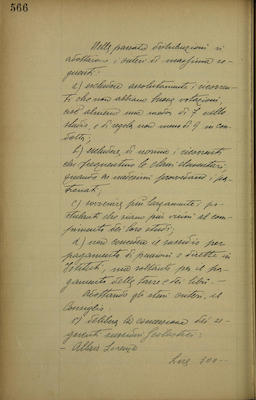 566
Nelle passate distribuzioni si
adottarono i criteri di massima se-
guenti:
a) escludere assolutamente i ricorren-
ti che non abbiano buone votazioni,
cioè almeno una media di 7 nello
studio, e di regola non meno di 9 in con-
dotta;
b) escludere di norma i ricorrenti
che frequentino le classi elementari,
quando ai medesimi provvedano i pa-
tronati;
c) sovvenire più largamente i po-
stulanti che siano più vicini al com-
pimento dei loro studi;
d) non concedere il sussidio per
pagamento di pensioni o di rette in
Istituti, ma soltanto per il pa-
gamento delle tasse e dei libri. -
Adottando gli stessi criteri, il
Consiglio
delibera la concessione dei se-
guenti sussidi scolastici:
- Allais Lorenzo
Lire 300 -